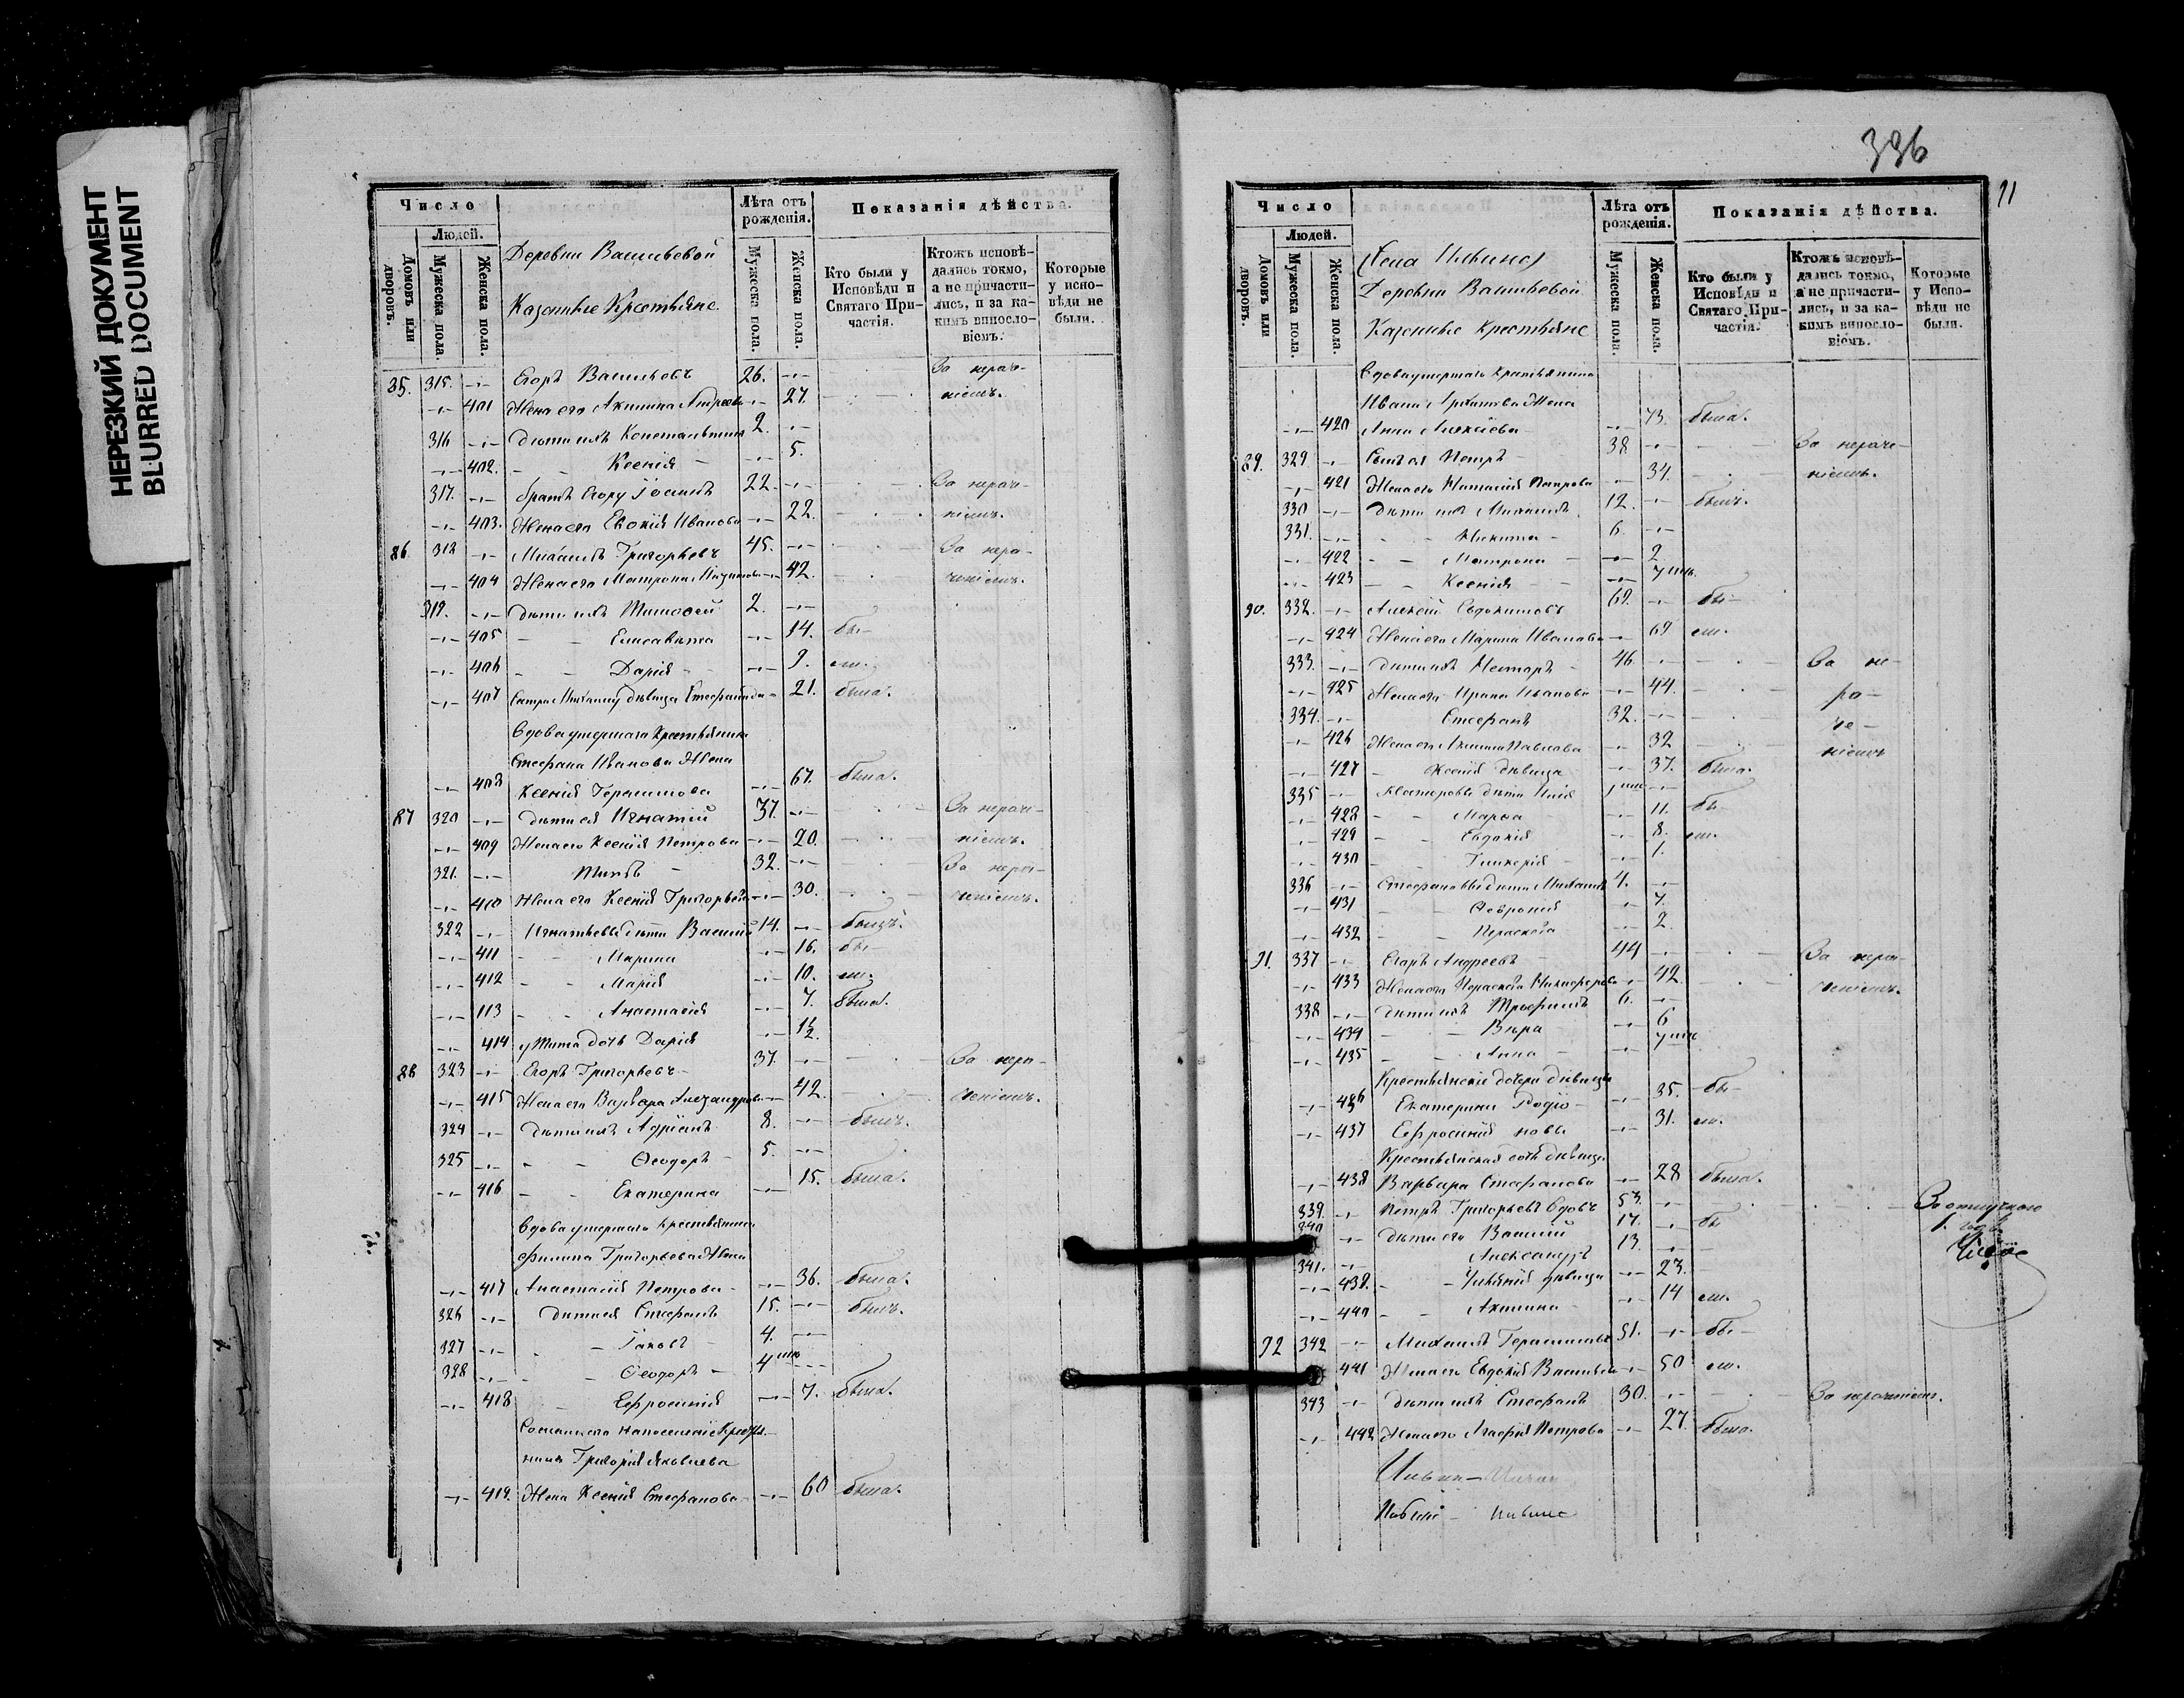 НЕРЕЗКИЙ ДОКУМЕНТ
BLURRED DOCUMENT
Число
Людей.
Домовъ или дворовъ.
Мужеска пола.
Женска пола.
Деревни Васильевой
Казенные Крестьяне.
Лѣта отъ рожденія.
Мужеска пола.
Женска пола.
Показанія дѣйства.
Кто были у Исповѣди и Святаго Причастія.
Ктожъ исповѣдались токмо, а не причастились, и за какимъ винословіемъ.
Которые у исповѣди не были.
85. 315. Егоръ Васильевъ 26. За нераче-
401 Жена его Акилина Андреева 27. ніемъ.
316 Дѣти ихъ Констант 2.
402. Ксенія 5.
317. братъ Егору Іоаннъ 22. За нераче-
403. Жена его Евдокія Иванова 22. ніемъ.
86. 318 Михаилъ Григорьевъ 45. За нера-
404 Жена его Матрона 42. ченіемъ.
319. Дѣти ихъ Тимофей 2.
405 Елисавета 14. бы-
406 Дарія 9. ли.
407 Сестра Михаилу дѣвица Стефанида 21. была.
Вдова умершаго Крестьянина
Стефана Иванова Жена
408 Ксенія Герасимова 67. была.
87 320 Дѣти ея Игнатій 37. За нераче-
409 Жена его Ксенія Петрова 20. ніемъ.
321. Титъ 32. За нера-
410 Жена его Ксенія Григорьева 30. ченіемъ.
322 Игнатьевы дѣти Василій 14. былъ.
411 Марина 16. бы-
412 Марія 10. ли.
113 Анастасія 7. была.
414 у Тита дочь Дарія 1/2.
88 323 Егоръ Григорьевъ 37. За нера-
415 Жена его Варвара Александрова 42. ченіемъ.
324 Дѣти ихъ Адріанъ 8. былъ.
325 Феодоръ 5.
416 Екатерина 15. была.
Вдова умершаго Крестьянина
Филипа Григорьева Жена
417 Анастасія Петрова 36. была.
326 Дѣти ея Стефанъ 15. былъ.
327 Іаковъ 4.
328 Феодоръ 4 мѣ
418 Ефросинія 7. была.
Сосланнаго на поселеніе Крестья-
нина Григорія Яковлева
419. Жена Ксенія Стефанова 60 была.
336
11
Число
Людей.
Домовъ или дворовъ.
Мужеска пола.
Женска пола.
Села Ильинс
Деревни Васильевой
Казенные Крестьяне
Лѣта отъ рожденія.
Мужеска пола.
Женска пола.
Показанія дѣйства.
Кто были у Исповѣди и Святаго Причастія.
Ктожъ исповѣдались токмо, а не причастились, и за какимъ винословіемъ.
Которые у Исповѣди не были.
Вдова умершаго Крестьянина
Ивана Архипова Жена
420 Анна Алексіева 73. была.
89. 329 Сынъ ея Петръ 38 За нераче-
421 Жена его Наталія Петрова 34. ніемъ.
330 Дѣти ихъ Михаилъ 12. былъ.
331. Никита 6.
422 Матрона 2
423 Ксенія 7 мѣ.
90. 332. Алексій Евдокимовъ 69. бы-
424 Жена его Марина Иванова 69 ли.
333. Дѣти ихъ Несторъ 46. За не-
425 Жена его Ирина Иванова 44. ра-
334. Стефанъ 32. че-
426 Жена его Акилина Павлова 32 ніемъ
427 Ксенія дѣвица 37. была.
335 Несторовы дѣти Илія
428 Марфа 11. бы-
429 Евдокія 8. ли.
430 Гликерія 1.
336 Стефановы дѣти Михаилъ 4.
431 Февронія 7.
432 Параскева 2.
91. 337 Егоръ Андреевъ 44 За нера-
433 Жена его Параскева Никифорова 42. ченіемъ.
338 Дѣти ихъ Трофимъ 6.
434 Вѣра 6
435 Анна 7 мѣ
Крестьянскіе дочери дѣвицы
436 Екатерина Родіо- 35. бы-
437 Ефросинія новы 31. ли.
Крестьянская дочь дѣвица
438 Варвара Стефанова 28 была.
339. Петръ Григорьевъ Вдовъ 53. За отлучкою
340 Дѣти его Василій 17. бы
341. Александръ 13.
438. Іуліанія дѣвица 23.
440 Акилина 14 ли.
92 342 Михаилъ Герасимовъ 51. бы-
441 Жена его Евдокія Васильева 50 ли.
343 Дѣти ихъ Стефанъ 30. За нераченіемъ.
442 Жена его Агафія Петрова 27. была.